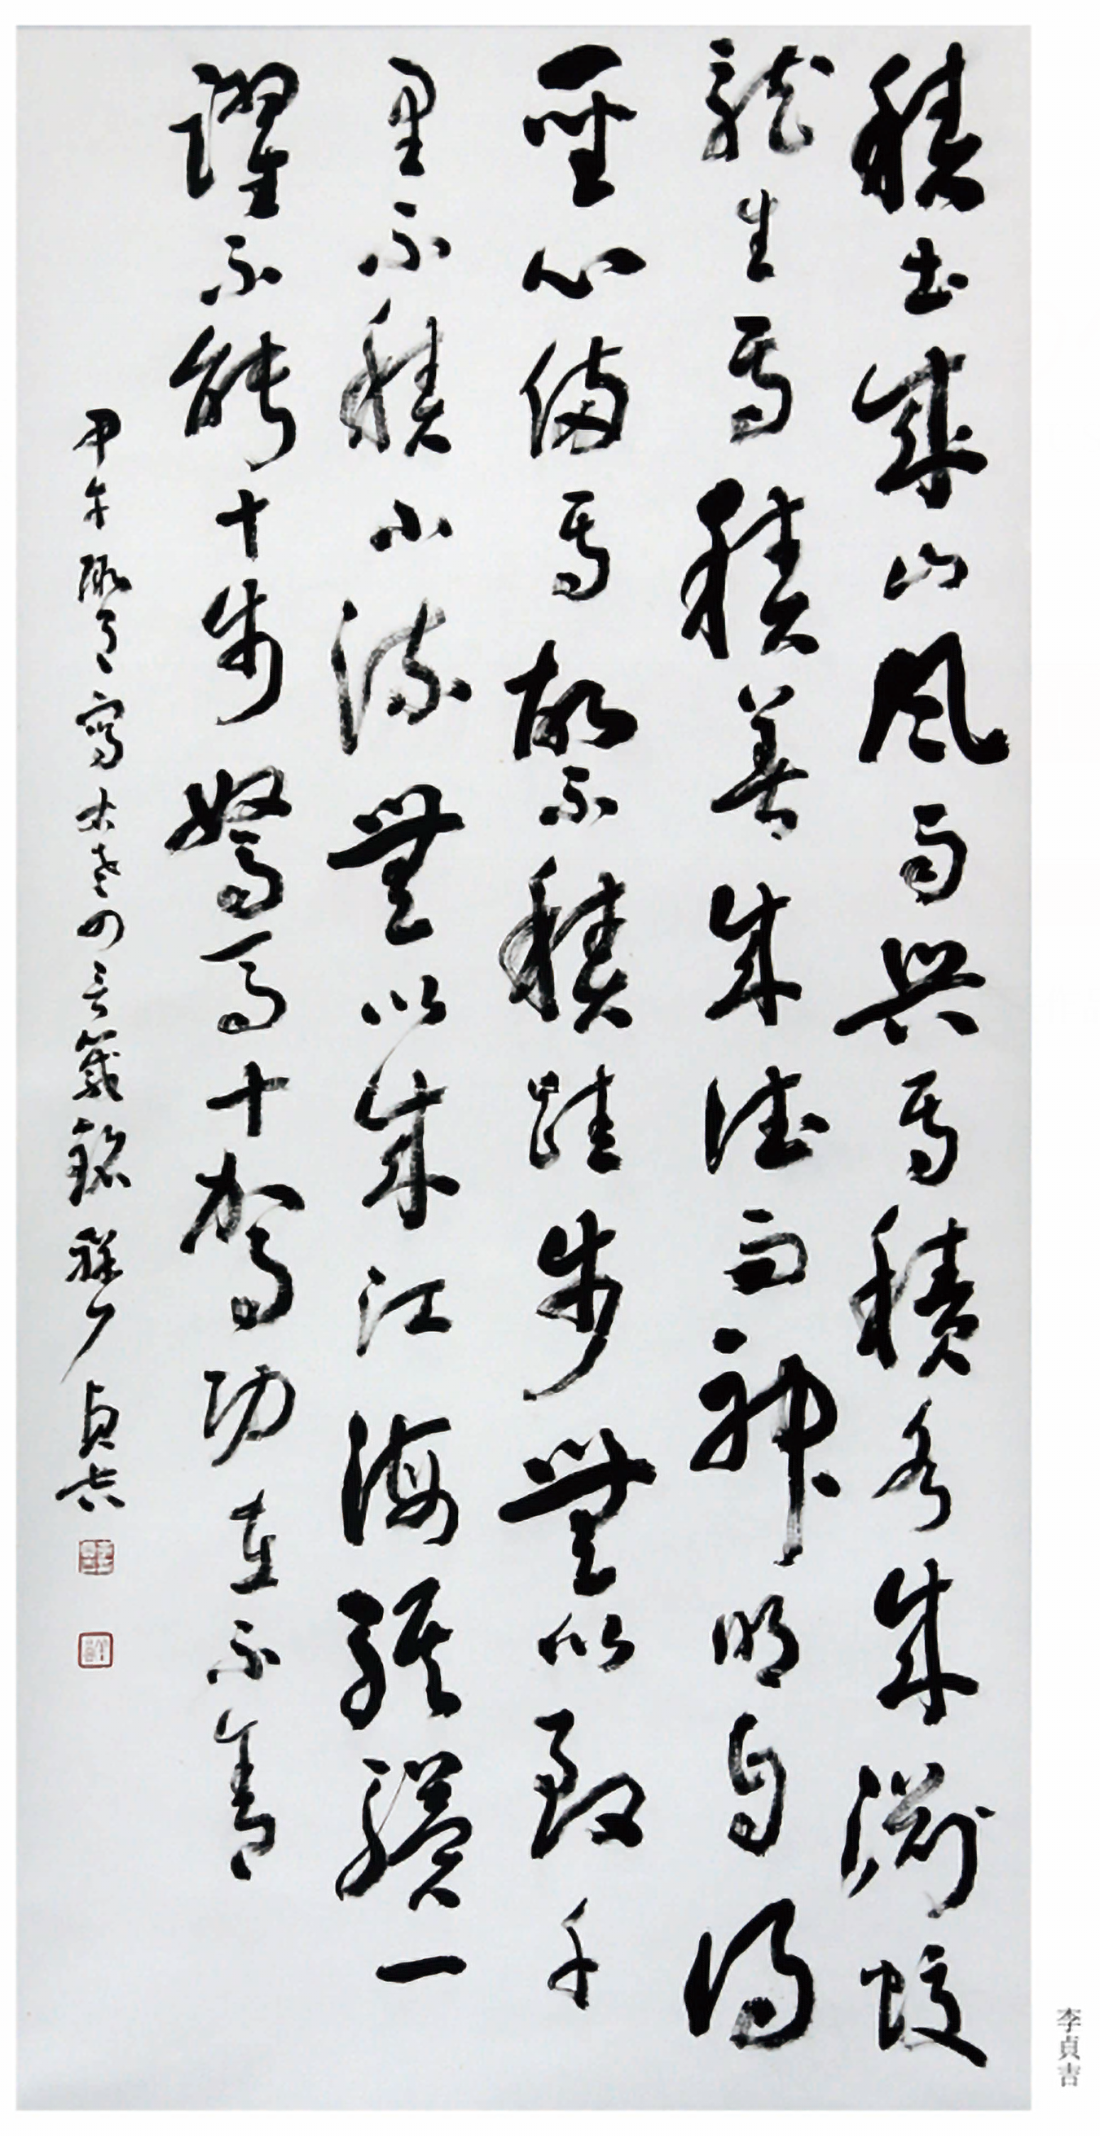 積土成山風雨興焉積水成淵蛟
龍生焉積善成德而神明自得
聖心備焉故不積跬步無以致千
里不積小流無以成江海騏驥一
躍不能十步駑馬十駕功在不舍
甲午 寫 箴銘 貞吉
李貞吉